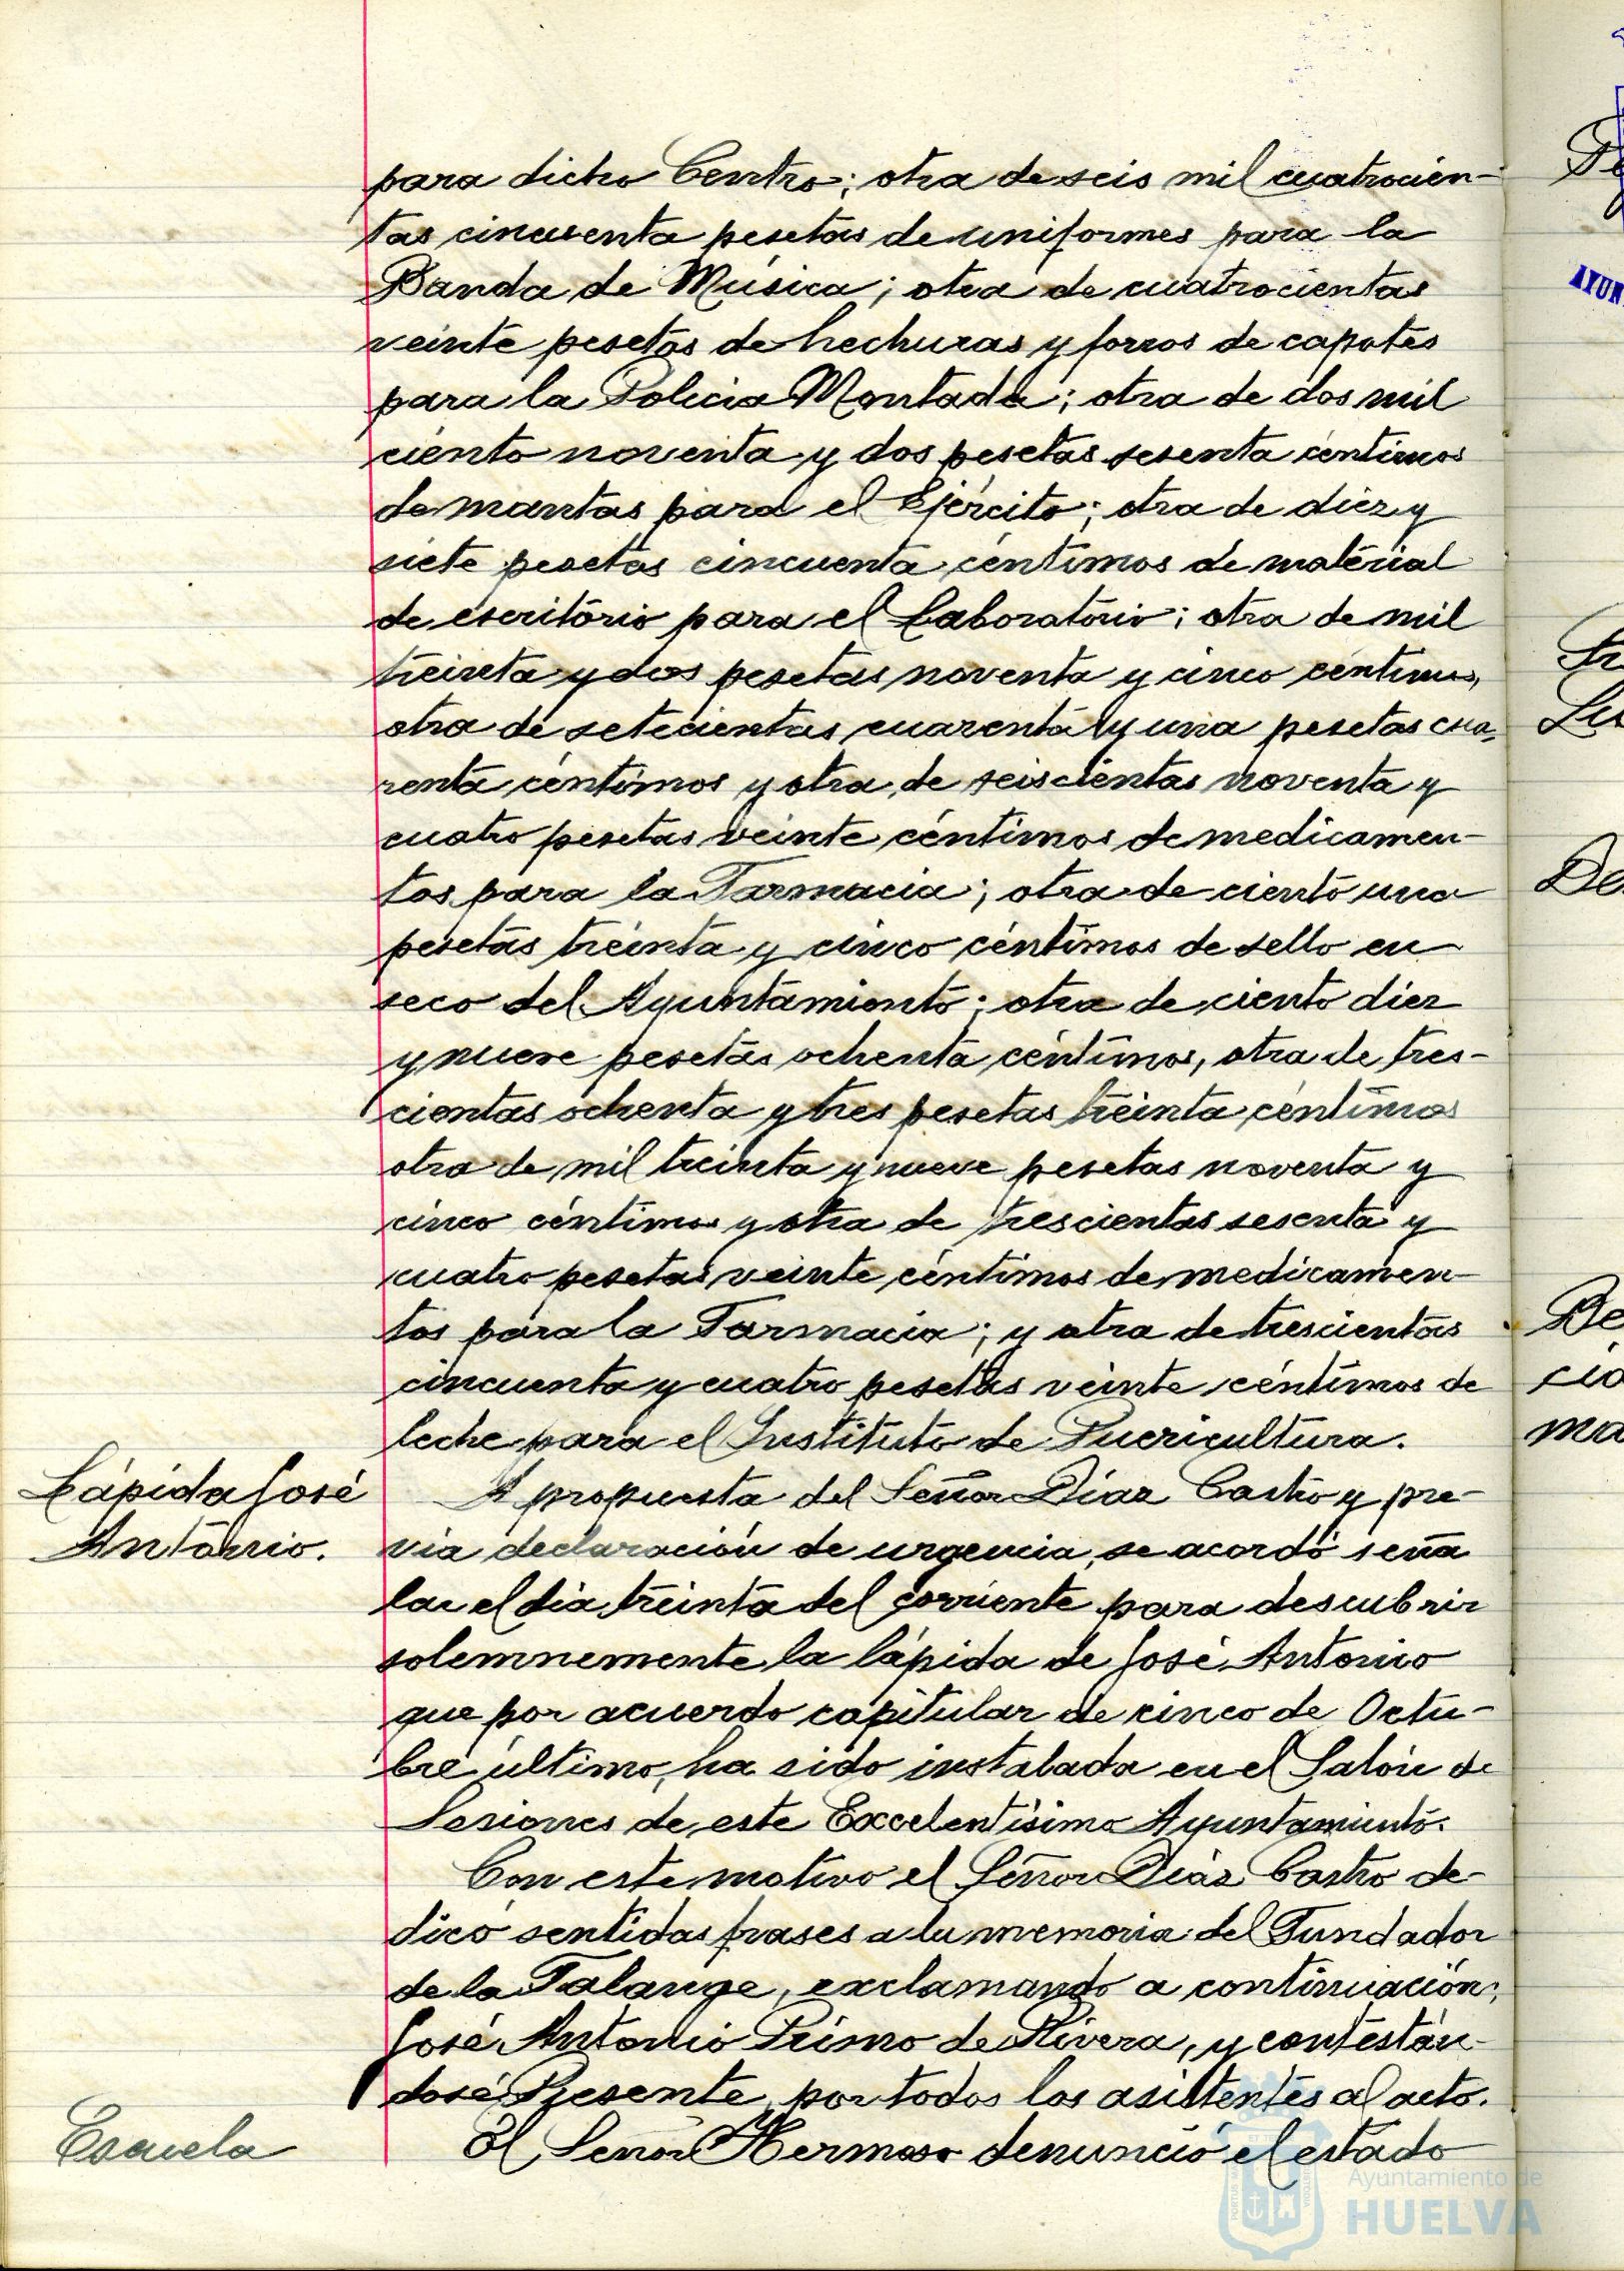 para dicho Centro; otra de seis mil cuatrocien-
tas cincuenta pesetas de uniformes para la
Banda de Música; otra de cuatrocientas
veinte pesetas de hechuras y forros de capotes
para la Policia Montada; otra de dos mil
ciento noventa y dos pesetas sesenta céntimos
de mantas para el Ejército; otra de diez y
siete pesetas cincuenta céntimos de material
de escritorio para el Laboratorio; otra de mil
treinta y dos pesetas noventa y cinco céntimos,
otra de setecientas cuarenta y una pesetas cua-
renta céntimos y otra de seiscientas noventa y
cuatro pesetas veinte céntimos de medicamen-
tos para la Farmacia; otra de ciento una
pesetas treinta y cinco céntimos de sello en
seco del Ayuntamiento; otra de ciento diez
y nueve pesetas ochenta céntimos, otra de tres-
cientas ochenta y tres pesetas treinta céntimos
otra de mil treinta y nueve pesetas noventa y
cinco céntimos y otra de trescientas sesenta y
cuatro pesetas veinte céntimos de medicamen-
tos para la Farmacia; y otra de trescientas
cincuenta y cuatro pesetas veinte céntimos de
leche para el Instituto de Puericultura.
Lápida José
Antonio.
A propuesta del Señor Díaz Castro y pre-
via declaración de urgencia, se acordó seña
lar el día treinta del corriente para descubrir
solemnemente la lápida de José Antonio
que por acuerdo capitular de cinco de Octu-
bre último, ha sido instalada en el Salón de
Sesiones de este Excelentísimo Ayuntamiento.
Con este motivo el Señor Díaz Castro de-
dicó sentidas frases a la memoria del Fundador
de la Falange, exclamando a continuación,
José Antonio Primo de Rivera, y contestán-
dose Presente, por todos los asistentes al acto.
Escuela
El Señor Hermoso denunció el estado
Ayuntamiento de
HUELVA